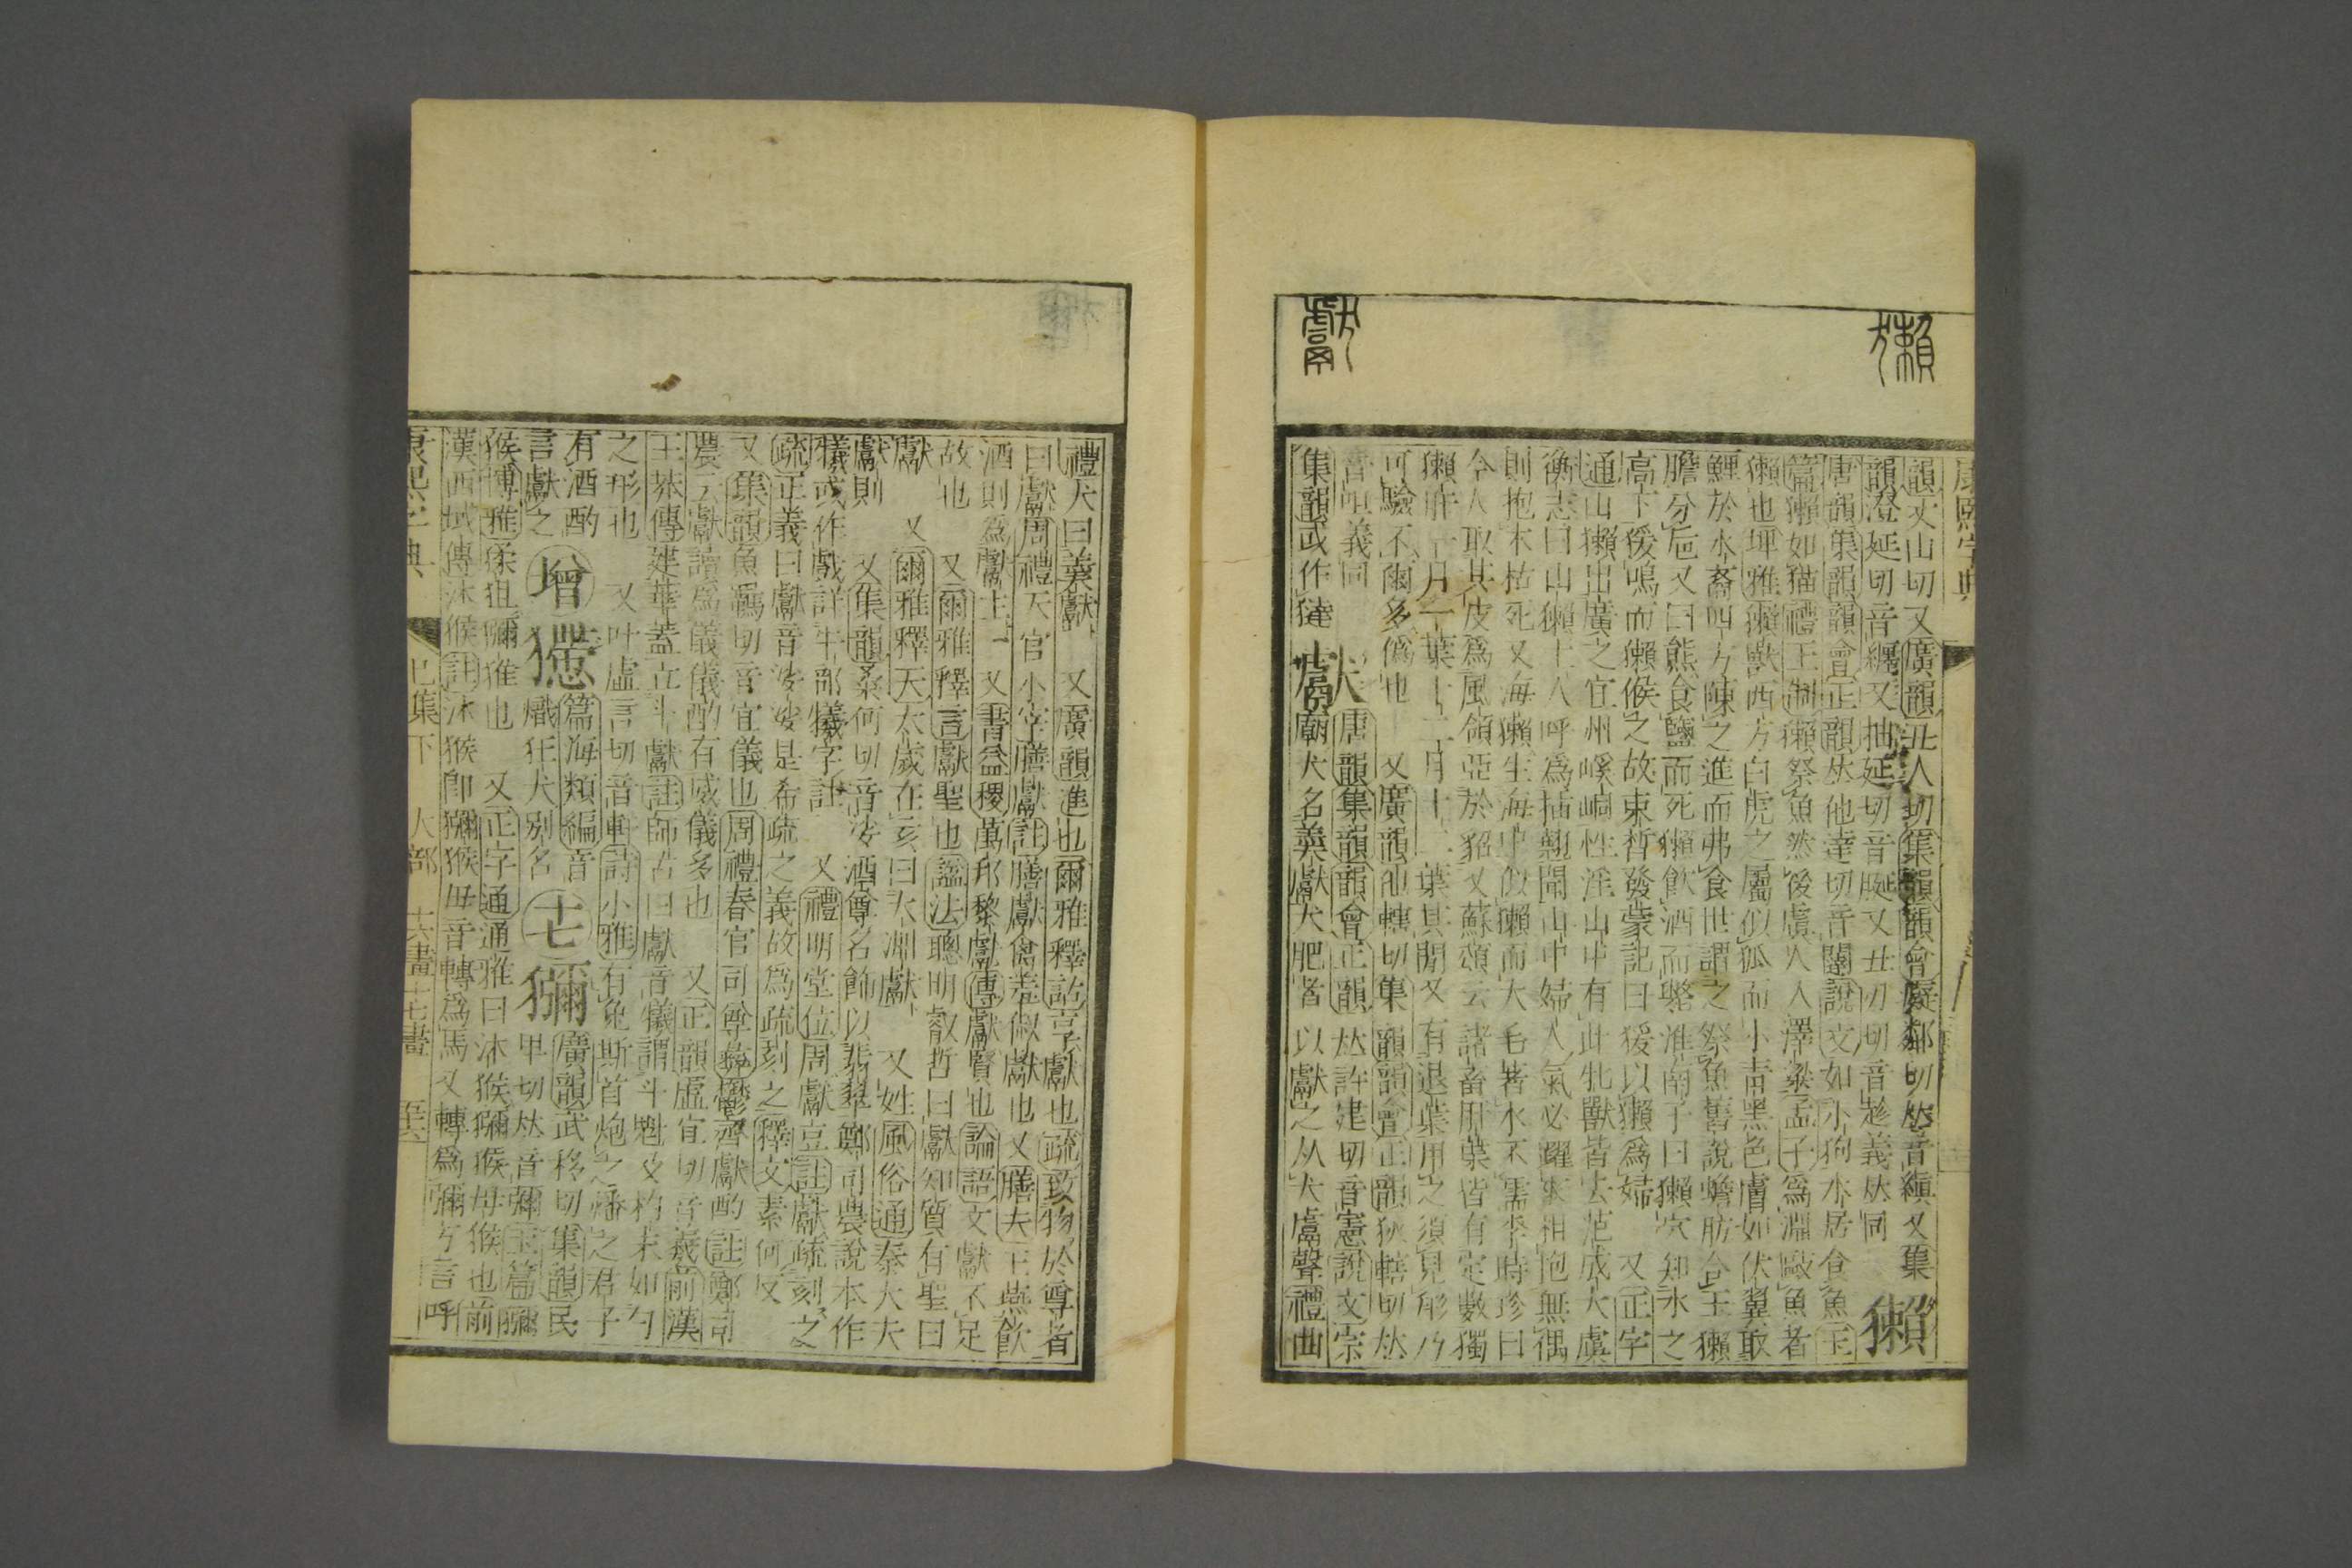 獺
獻
康熙字典
韻丈山切又廣韻丑人切集韻韻會癡鄰切𠀤音縝又集
韻澄延切音纏又抽延切音脡又丑刃切音趁義𠀤同 獺
唐韻集韻韻會正韻𠀤他達切音闥說文如小狗水居食魚玉
篇獺如猫禮王制獺祭魚然後虞人入澤梁孟子爲淵敺魚者
獺也埤雅獺獸西方白虎之屬似狐而小靑黑色膚如伏翼取
鯉於水裔四方陳之進而弗食世謂之祭魚舊說蟾肪合玉獺
膽分巵又曰熊食鹽而死獺飮酒而斃淮南子曰獺穴知水之
高下猨鳴而獺候之故束晳發蒙記曰猨以獺爲婦 又正字
通山獺出廣之宜州嵠峒性淫山中有此牝獸皆去范成大虞
衡志曰山獺土人呼爲揷翹聞山中婦人氣必躍來相抱無偶
則抱木枯死又海獺生海中似獺而大毛著水不濡李時珍曰
今人取其皮爲風領亞於貂又蘇頌云諸畜肝葉皆有定數獨
獺肝一月一葉十二月十二葉其閒又有退葉用之須見形乃
可驗不爾多僞也 又廣韻 轄切集韻韻會正韻狄轄切𠀤
音呾義同
集韻或作㺚 獻 唐韻集韻韻會正韻𠀤許建切音憲說文宗
廟犬名羹獻犬肥者以獻之从犬鬳聲禮曲
禮犬曰羹獻 又廣韻進也爾雅釋詁享獻也疏致物於尊者
曰獻周禮天官小宰膳獻註膳獻禽羞俶獻也又膳夫王燕飮
酒則爲獻主 又書益稷萬邦黎獻傳獻賢也論語文獻不足
故也 又爾雅釋言獻聖也諡法聰明叡哲曰獻知質有聖曰
獻 又爾雅釋天太歲在亥曰大淵獻 又姓風俗通秦大夫
獻則 又集韻桑何切音娑酒尊名飾以翡翠鄭司農說本作
犧或作戲詳牛部犧字註 又禮明堂位周獻豆註獻疏刻之
疏正義曰獻音娑娑是希疏之義故爲疏刻之釋文素何反
又集韻魚羈切音宜儀也周禮春官司尊彝鬱齊獻酌註鄭司
農云獻讀爲儀儀酌有威儀多也 又正韻虛宜切音羲前漢
王莽傳建華蓋立斗獻註師古曰獻音犧謂斗魁及杓末如勺
之形也 又叶虛言切音軒詩小雅有兔斯首炮之燔之君子
有酒酌
言獻之 增 㺔 篇海類編音
熾狂犬別名 十七 獼 廣韻武移切集韻民
𢆡切𠀤音彌玉篇獼
猴博雅猱狙獼猴也 又正字通通雅曰沐猴獼猴母猴也前
漢西域傳沐猴註沐猴卽獼猴母音轉爲馬又轉爲彌方言呼
康熙字典 巳集下 犬部 十六畫 十七畫